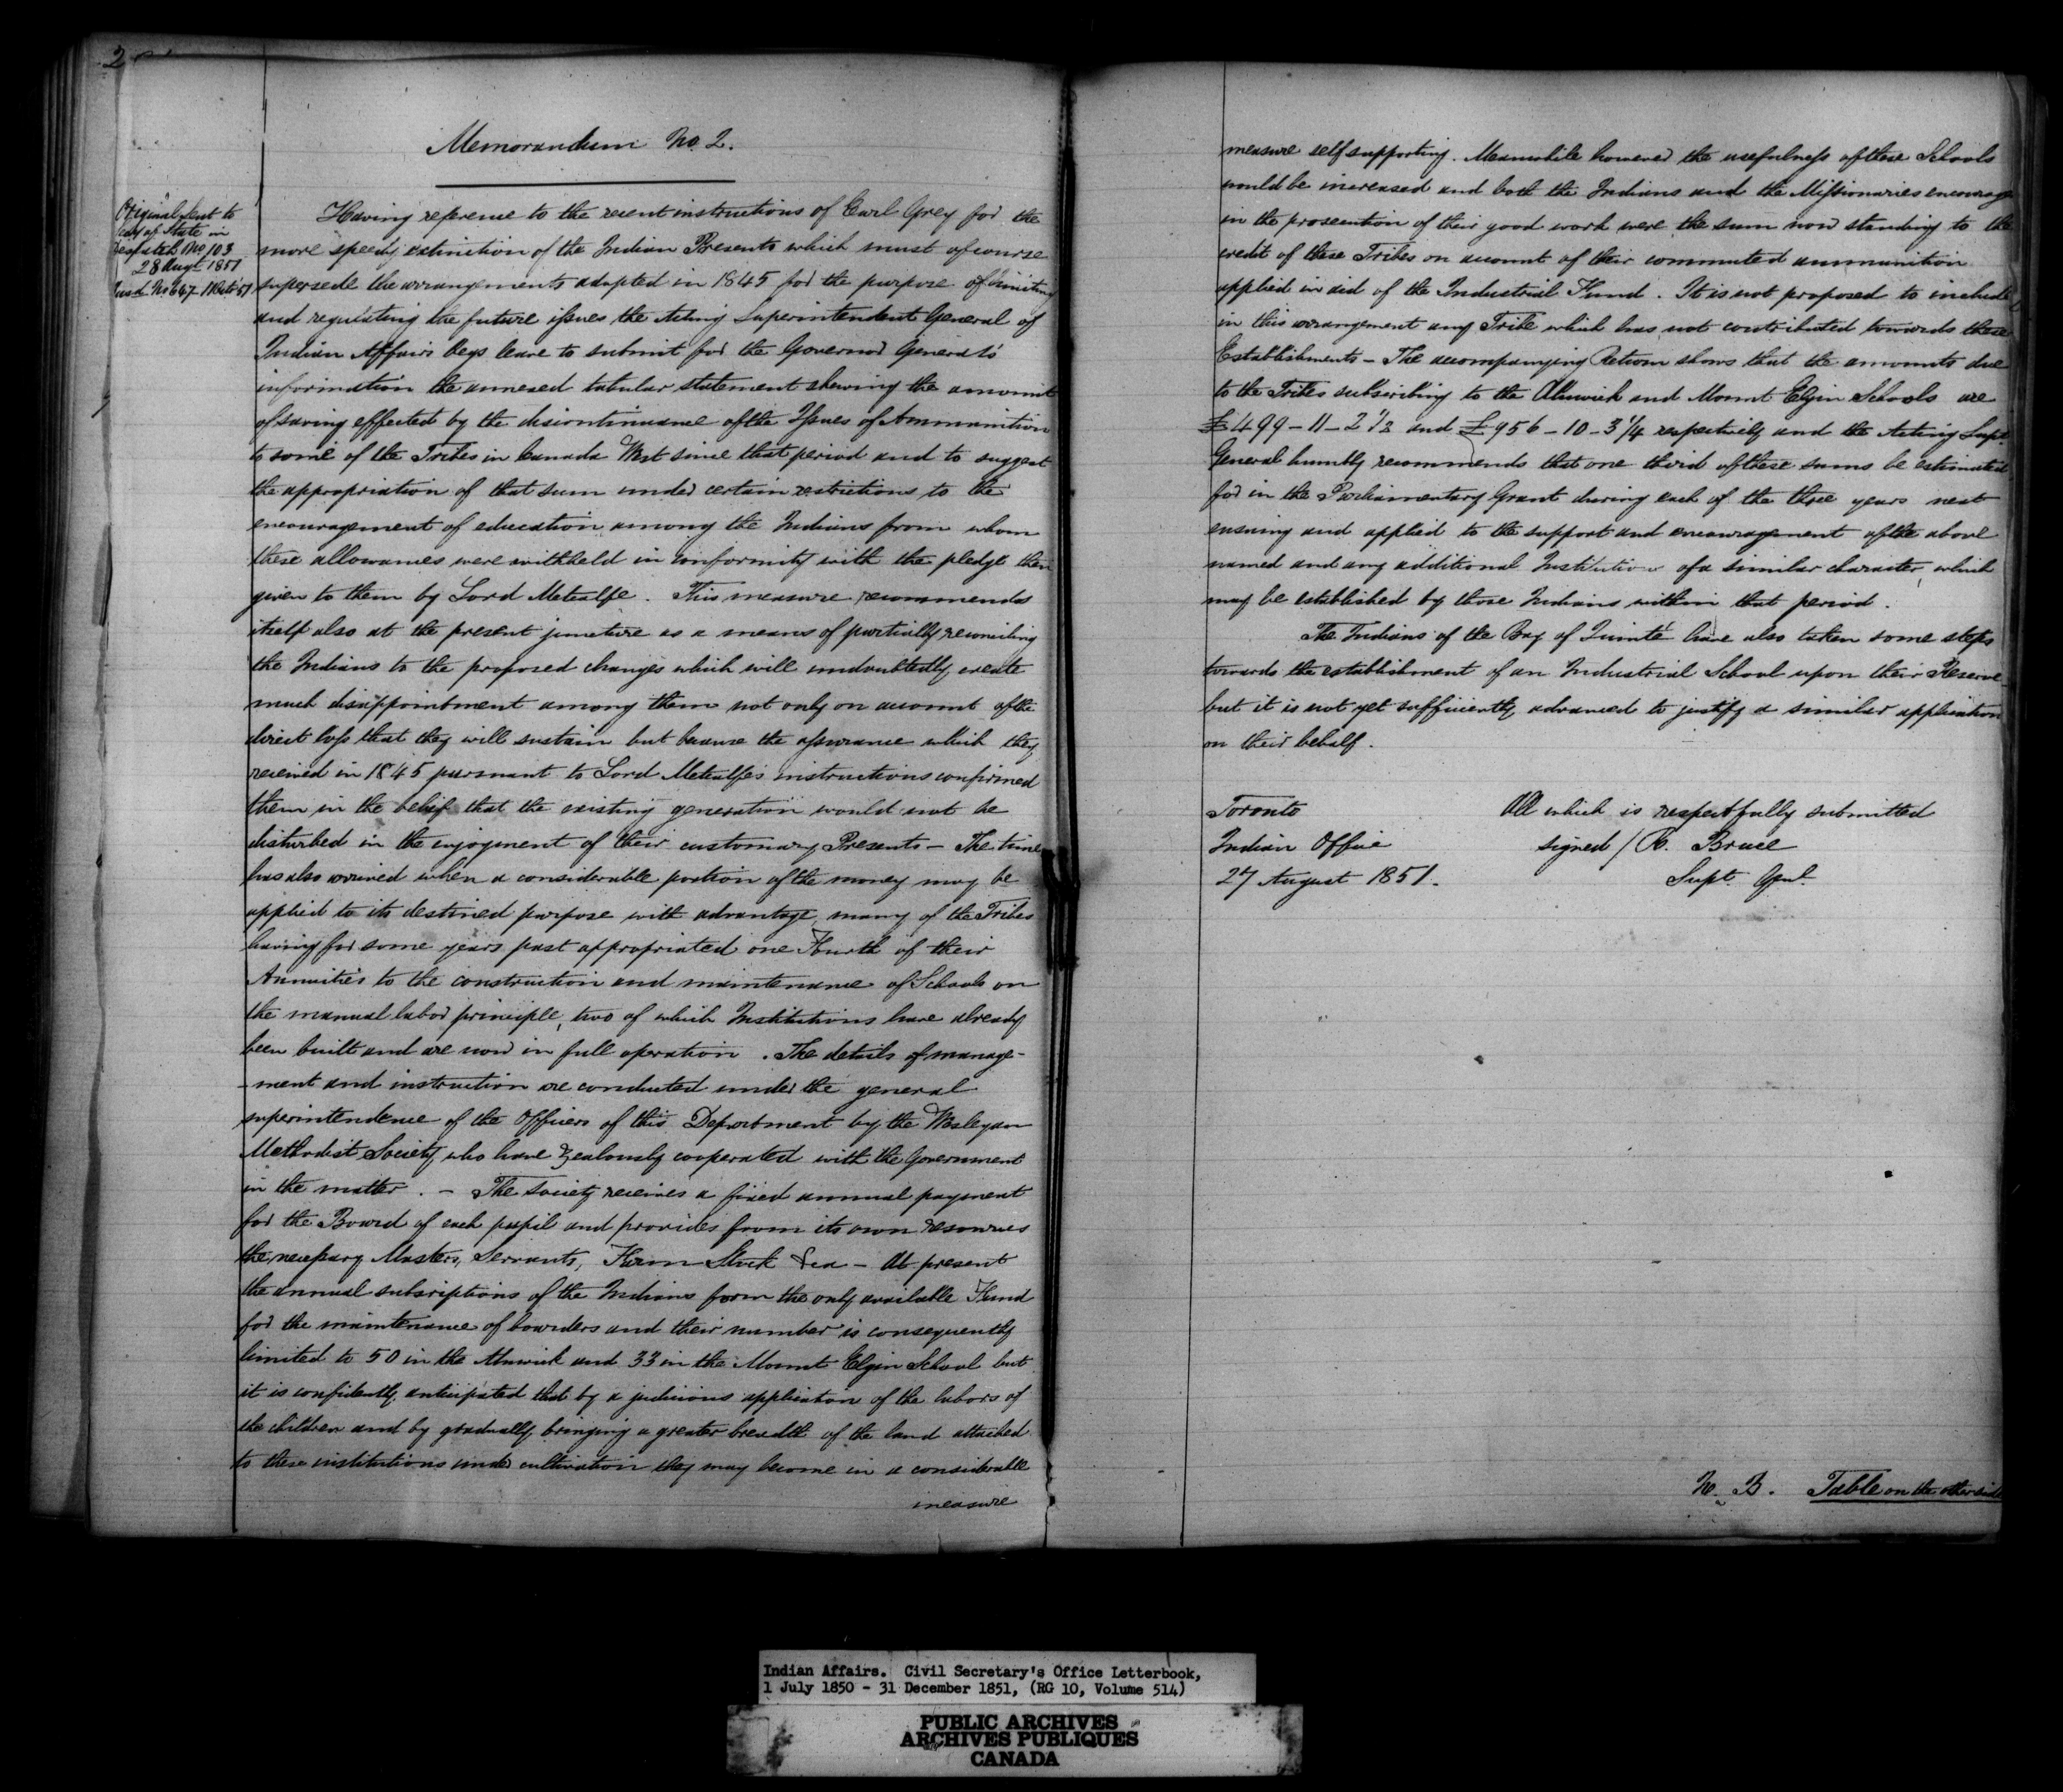 2
Memorandum No. 2.
Original sent to
Secy of State in
Despatch No 103
28 Augt 1851
No 647
Having reference to the recent instructions of Earl Grey for the
more speedy extinction of the Indian Presents which must of course
supersede the arrangements adopted in 1845 for the purpose of limiting
and regulating the future issues the Acting Superintendent General of
Indian Affairs begs leave to submit for the Governor General's
information the annexed tabular statement shewing the amount
of saving effected by the discontinuance of the Issues of Ammunition
to some of the Tribes in Canada West since that period and to suggest
the appropriation of that sum under certain restrictions to the
encouragement of education among the Indians from whom
these allowances were withheld in conformity with the pledge then
given to them by Lord Metcalfe. This measure recommends
itself also at the present juncture as a means of partially reconciling
the Indians to the proposed changes which will undoubtedly create
much disappointment among them not only on account of the
direct loss that they will sustain but because the assurance which they
received in 1845 pursuant to Lord Metcalfe's instructions confirmed
them in the belief that the existing generation would not be
disturbed in the enjoyment of their customary Presents - The time
has also arrived when a considerable portion of the money may be
applied to its destined purpose with advantage, many of the Tribes
having for some years past appropriated one Fourth of their
Annuities to the construction and maintenance of Schools on
the manual labor principle, two of which Institutions have already
been built and are now in full operation. The details of manage-
-ment and instruction are conducted under the general
superintendence of the Officers of this Department by the Wesleyan
Methodist Society who have zealously cooperated with the Government
in the matter. - The Society receives a fixed annual payment
for the Board of each pupil and provides from its own resources
the necessary Masters, Servants, Farm Stock &ca - At present
the annual subscriptions of the Indians form the only available Fund
for the maintenance of boarders and their number is consequently
limited to 50 in the Alnwick and 33 in the Mount Elgin School but
it is confidently anticipated that by a judicious application of the labors of
the children and by gradually bringing a greater breadth of the land attached
to these institutions under cultivation they may become in a considerable
measure
measure self supporting. Meanwhile however the usefulness of these Schools
would be increased and both the Indians and the Missionaries encourage
in the prosecution of their good work were the sum now standing to the
credit of these Tribes on account of their commuted ammunition
applied in aid of the Industrial Fund. It is not proposed to include
in this arrangement any Tribe which has not contributed towards these
Establishments - The accompanying Return shows that the amounts due
to the Tribes subscribing to the Alnwick and Mount Elgin Schools are
£499-11-2 1/2 and £956-10-3 1/4 respectively and the Acting Supt
General humbly recommends that one third of these sums be estimated
for in the Parliamentary Grant during each of the three years next
ensuing and applied to the support and encouragement of the above
named and any additional Institution of a similar character, which
may be established by those Indians within that period.
The Indians of the Bay of Quinté have also taken some steps
towards the establishment of an Industrial School upon their Reserve
but it is not yet sufficiently advanced to justify a similar application
on their behalf.
Toronto
Indian Office
27 August 1851.
All which is respectfully submitted
signed / R. Bruce
Supt. Genl.
N. B. Table on the other side
Indian Affairs. Civil Secretary's Office Letterbook,
1 July 1850 - 31 December 1851, (RG 10, Volume 514)
PUBLIC ARCHIVES
ARCHIVES PUBLIQUES
CANADA